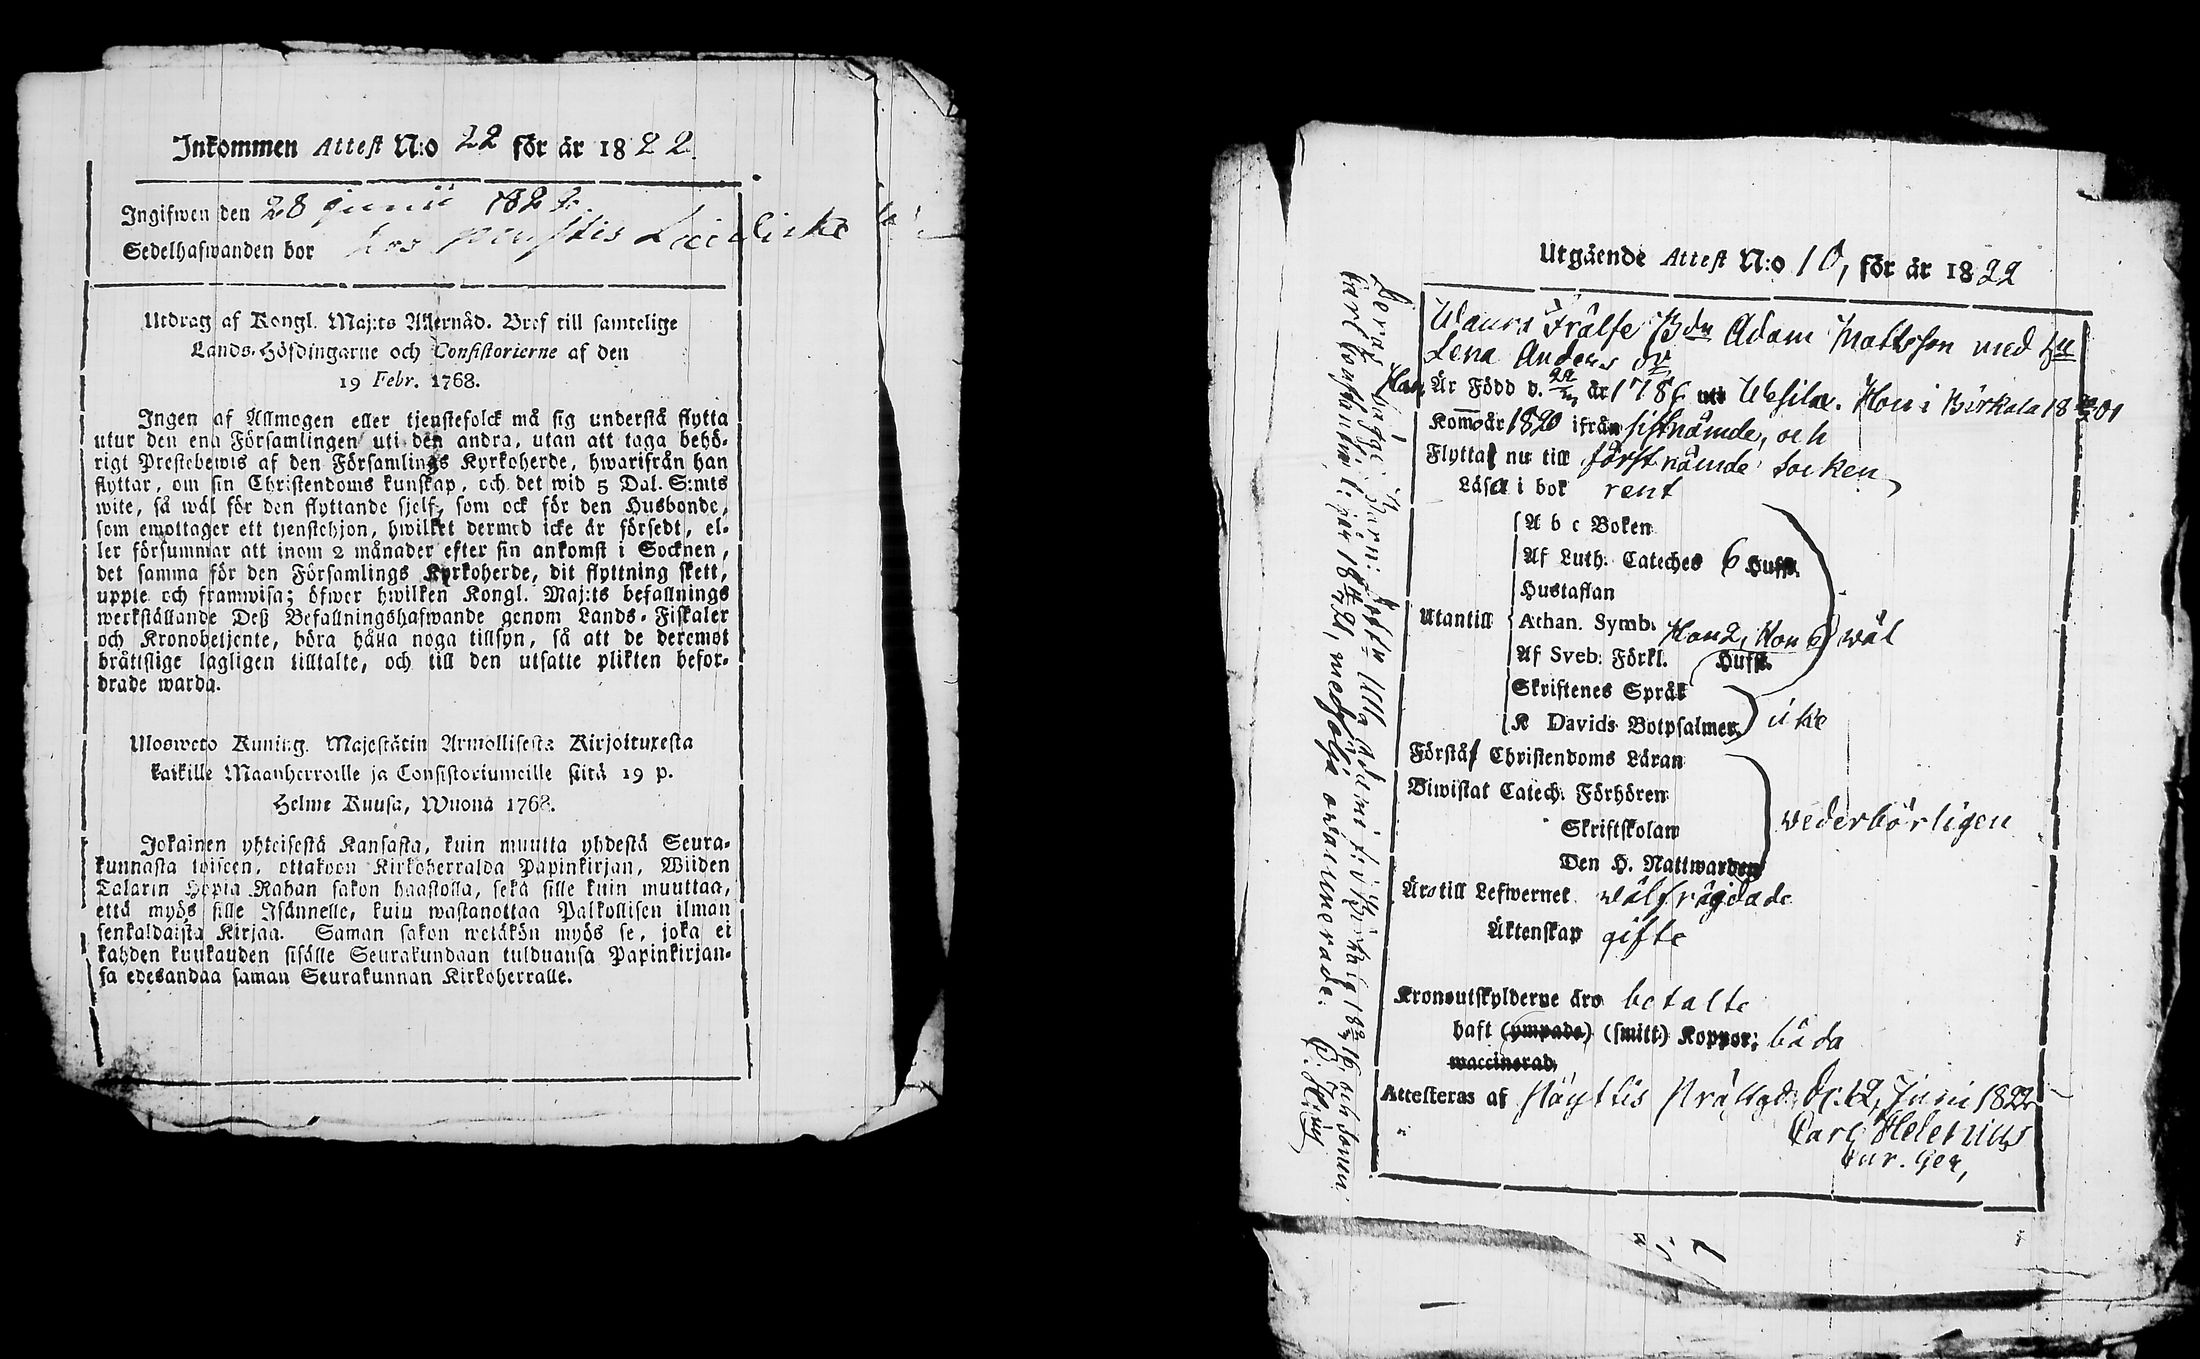 Inkommen Attest N:o 22 för år 1822.
Ingifwen den 28 junii 1822.
Sedelhafwanden bor
Utdrag af Kongl. Maj:ts Allernåd. Bref till samtelige
Lands-Höfdingarne och Consistorierne af den
19 Febr. 1768.
Ingen af Allmogen eller tjenstefolck må sig understå flytta
utur den ena Församlingen uti den andra, utan att taga behö-
rigt Prestebewis af den Församlings Kyrkoherde, hwarifrån han
flyttar, om sin Christendoms kunskap, och det wid 5 Dal. S:mts
wite, så wäl för den flyttande sjelf, som ock för den Husbonde,
som emottager ett tjenstehjon, hwilket dermed icke är försedt, el-
ler försummar att inom 2 månader efter sin ankomst i Socknen,
det samma för den Församlings Kyrkoherde, dit flyttning skett,
uppte och framwisa; öfwer hwilken Kongl. Maj:ts befallnings
werkställande Deß Befallningshafwande genom Lands-Fiskaler
och Kronobetjente, böra hålla noga tillsyn, så att de deremot
bråttslige lagligen tilltalte, och till den utsatte plikten befor-
drade warda.
Ulosweto Kuning. Majestätin Armollisesta Kirjoituxesta
kaikille Maanherroille ja Consistoriumeille siitä 19 p.
Helme Kuusa, Wuonä 1768.
Jokainen yhteisestä Kansasta, kuin muutta yhdestä Seura-
kunnasta toiseen, ottakoon Kirkoherralda Papinkirjan, Wiiden
Talarin Hopia Rahan sakon haastolla, sekä sille kuin muuttaa,
että myös sille Isännelle, kuin wastanottaa Palkollisen ilman
senkaldaista Kirjaa. Saman sakon wetäkön myös se, joka ei
kahden kuukauden sisälle Seurakundaan tulduansa Papinkirjan-
sa edesandaa saman Seurakunnan Kirkoherralle.
Utgående Attest N:o 10, för år 1822
Frälse Bdn Adam Mattsson med Hu
Lena Anders dr
Han Är Född d. 22 år 1786 uti Wesilax. Hon i Birkala 1801
Kom år 1820 ifrån sistnämde, och
Flytta nu till förstnämde Socken
Läsa i bok rent
A b c Boken
Af Luth. Cateches 6 Hufst.
Hustaflan
Utantill Athan. Symb.
Af Sveb. Förkl. Han 2, Hon 6 Hufst. wäl
Skriftenes Språk
K Davids Botpsalmer icke
Förstå Christendoms Läran
Biwistat Catech. Förhören
Skriftskolan wederbörligen
Den H. Nattwarden
Äro till Lefwernet wälfrägdade
Äktenskap gifte
Kronoutskylderne äro betalte
haft (ympade) (smitt) Koppor; båda
waccinerad
Attesteras af Nöyttis Prästgd. d. 12 Juni 1822
Carl Helenius
Cur. Ger.